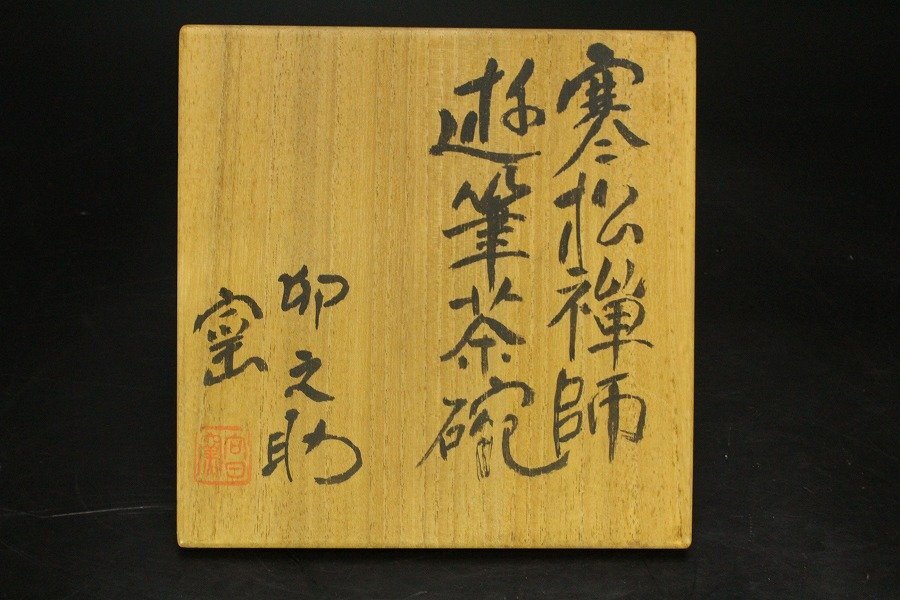 寒松禅師
遊筆茶碗
卯之助
窯